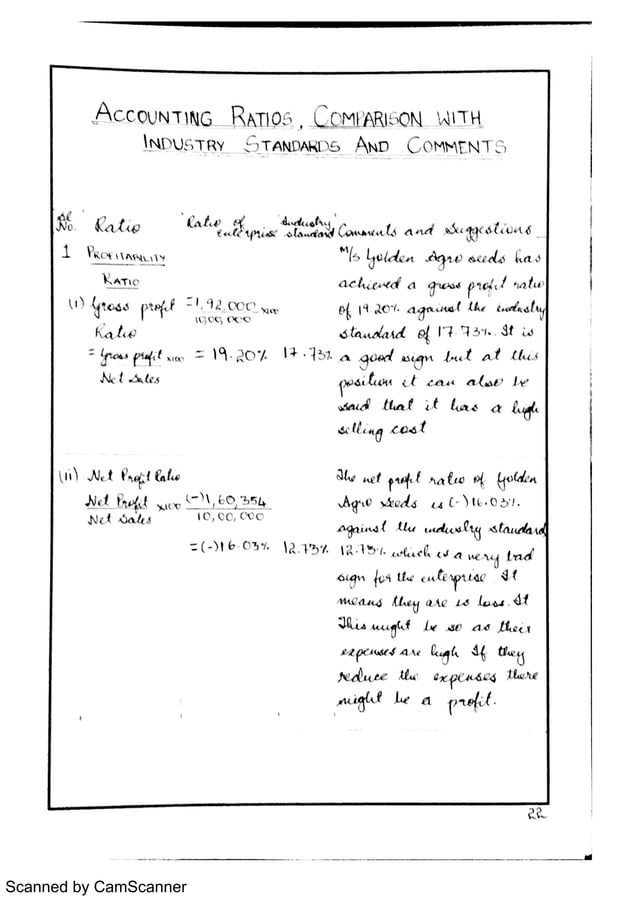 ACCOUNTING RATIOS, COMPARISON WITH
INDUSTRY STANDARDS AND COMMENTS
Sl No. Ratio Ratio of enterprise Industry standard Comments and Suggestions
1 PROFITABILITY RATIO
(i) Gross profit Ratio
= Gross profit x100
Net Sales
= 1,92,000 x100
10,00,000
= 19.20% 17.73%
M/s Golden Agro seeds has
achieved a gross profit ratio
of 19.20% against the industry
standard of 17.73%. It is
a good sign but at this
position it can also be
said that it has a high
selling cost
(ii) Net Profit Ratio
Net Profit x100
Net Sales
(-)1,60,354
10,00,000
= (-)16.03% 12.73%
The net profit ratio of Golden
Agro Seeds is (-)16.03%.
against the industry standard
12.73% which is a very bad
sign for the enterprise. It
means they are is loss. It
This might be so as their
expenses are high If they
reduce the expenses there
might be a profit.
22
Scanned by CamScanner